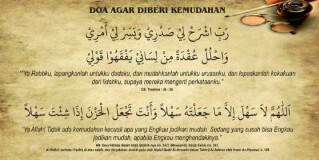 DOA AGAR DIBERI KEMUDAHAN
رَبِّ اشْرَحْ لِي صَدْرِي وَيَسِّرْ لِي أَمْرِي
وَاحْلُلْ عُقْدَةً مِنْ لِسَانِي يَفْقَهُوا قَوْلِي
"Ya Rabbku, lapangkanlah untukku dadaku, dan mudahkanlah untukku urusanku, dan lepaskanlah kekakuan
dari lidahku, supaya mereka mengerti perkataanku."
اَللَّهُمَّ لَا سَهْلَ إِلَّا مَا جَعَلْتَهُ سَهْلًا وَأَنْتَ تَجْعَلُ الْحَزْنَ إِذَا شِئْتَ سَهْلًا
"Ya Allah! Tidak ada kemudahan kecuali apa yang Engkau jadikan mudah. Sedang yang susah bisa Engkau
jadikan mudah, apabila Engkau menghendakinya."